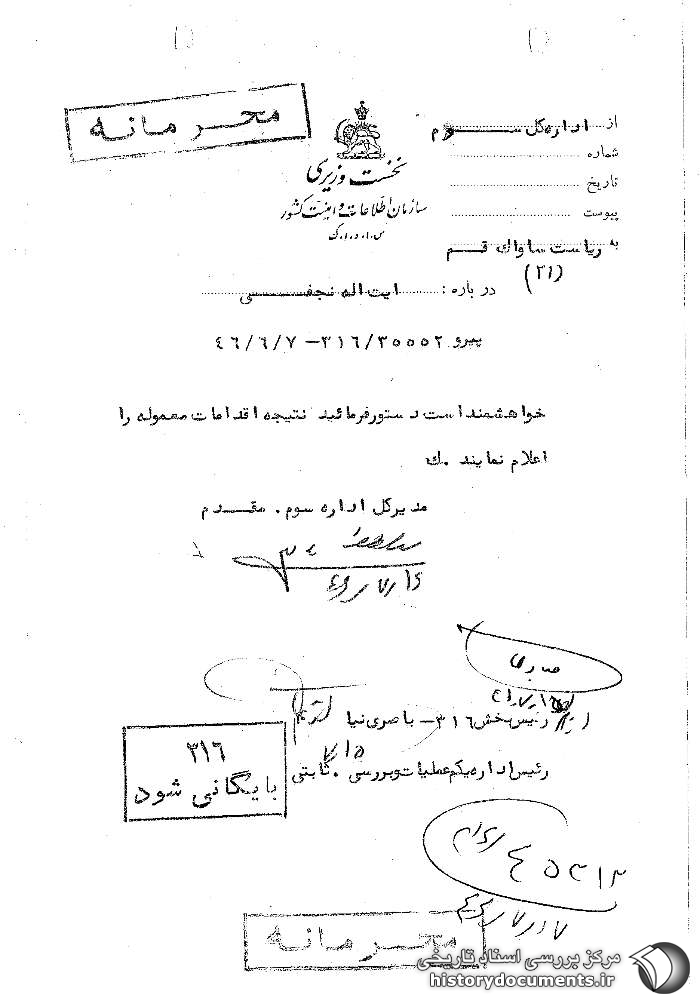 محرمانه
نخست وزیری
سازمان اطلاعات و امنیت کشور
س.ا.و.ا.ک
از اداره کل سوم
شماره
تاریخ
پیوست
به ریاست ساواک قم
(۲۱)
درباره : ایت اله نجفی
پیرو ۳۱۶/۳۰۰۰۲ -۴۶/۶/۷
خواهشمند است دستور فرمائید نتیجه اقدامات معموله را
اعلام نمایند .ک
مدیرکل اداره سوم . مقدم
رئیس بخش ۳۱۶ -
رئیس اداره یکم عملیات و بررسی . ثابتی
۳۱۶
بایگانی شود
محرمانه
مرکز بررسی اسناد تاریخی
historydocuments.ir